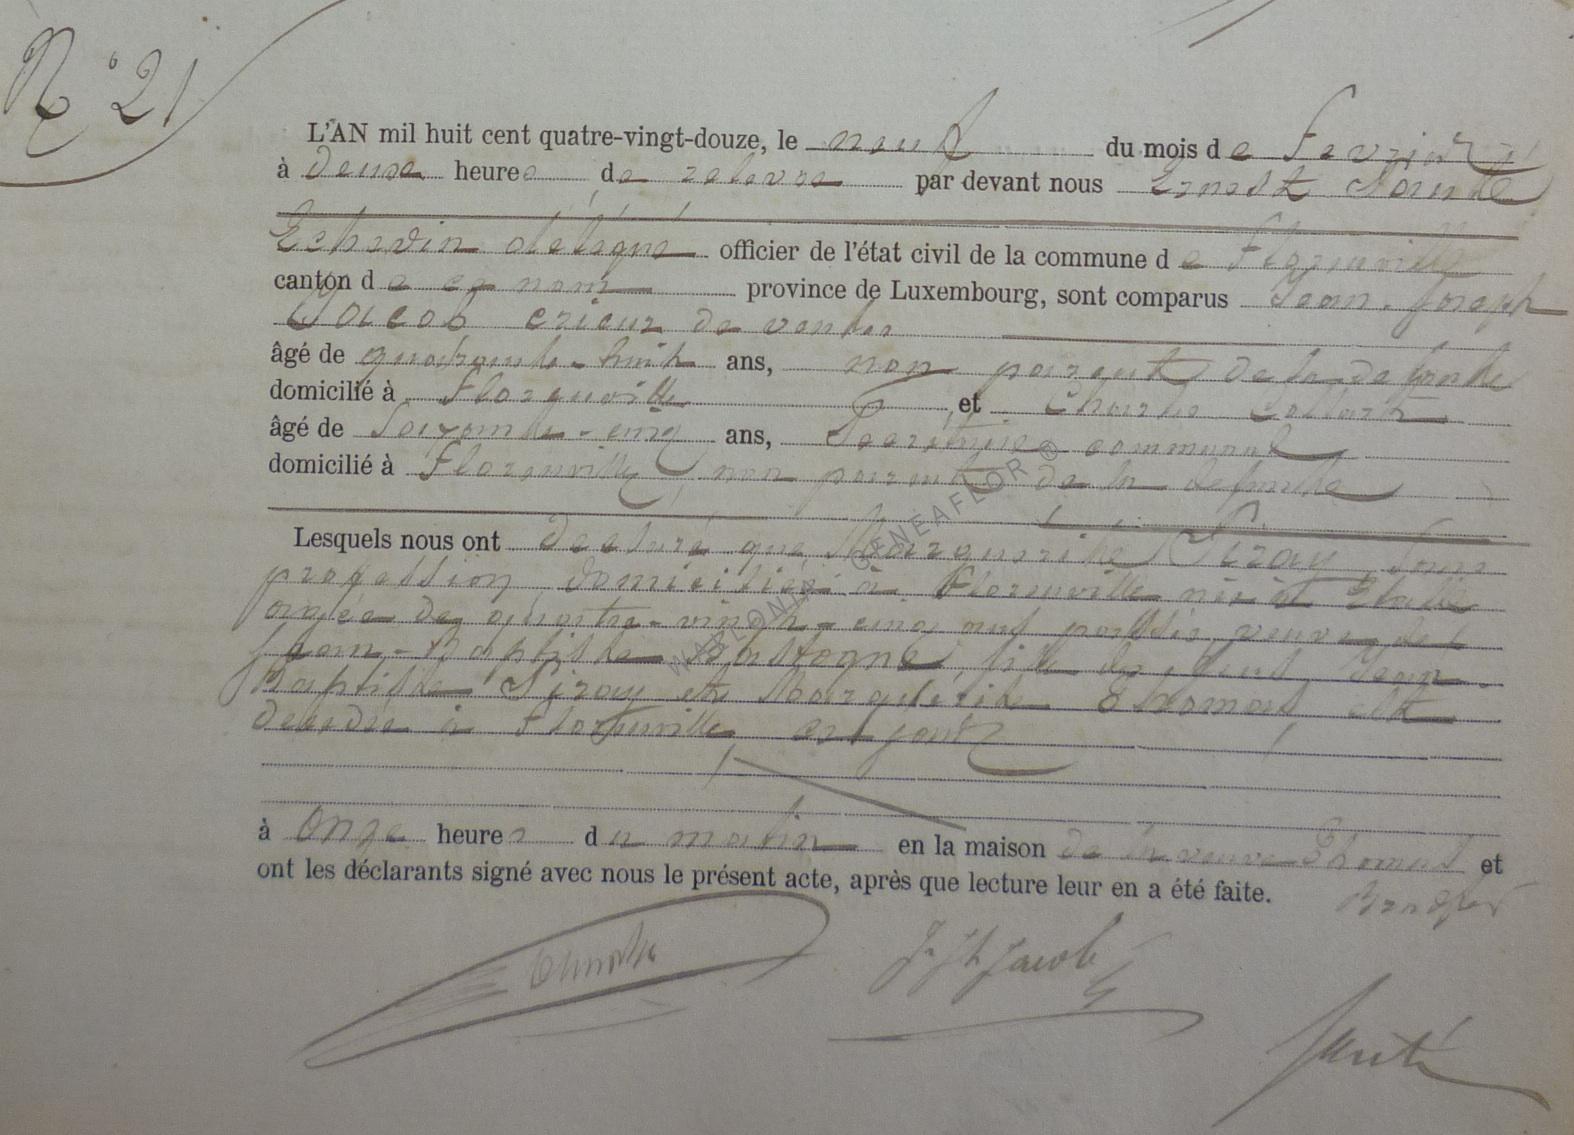 N° 21
L'AN mil huit cent quatre-vingt-douze, le neuf du mois de Fevrier
à deux heures de relevée par devant nous Ernest
Echevin délégué officier de l'état civil de la commune de Florenville
canton de ce nom province de Luxembourg, sont comparus Jean-Joseph
Jacob crieur de ventes
âgé de quarante-huit ans, non parent de la defunte
domicilié à Florenville et Charles Collard
âgé de Soixante-cinq ans, Secrétaire communal
domicilié à Florenville, non parent de la defunte
Lesquels nous ont declaré que Marguerite Piray, sans
profession, domiciliée à Florenville née à Etalle
agée de quatre-vingt-cinq ans passés, veuve de
Jean-Baptiste Bastogne fille des feus Jean-
Baptiste Piray et Marguerite Thomas, est
decedée à Florenville ce jour
à onze heures du matin en la maison de la veuve Thomas et
ont les déclarants signé avec nous le présent acte, après que lecture leur en a été faite.
J. Jh Jacob
WALLONIA GENEAFLOR ©